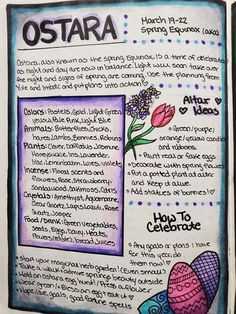 OSTARA
March 19-22
Spring Equinox
Ostara, also known as the Spring Equinox is a time of celebration
as night and day are now in balance. Light will soon take over
the night and signs of spring are coming. Use the planning from
Yule and Imbolc and put plans into action
Colors: Pastels, Gold, Light Green,
yellow, Pale Pink, Light Blue
Animals: Butterflies, Chicks,
hares, Lambs, Bunnies, Robins
Plants: Clover, Daffodils, Jasmine
Honeysuckle, Iris, Lavender,
lilac, Lemon balm, Lilies, violets
Incense: Floral scents and
flowers, Rose, Strawberry,
Sandalwood, Citrus
Crystals: Amethyst, Aquamarine,
Clear Quartz, Rose
Quartz, Jasper
Food/Drink: Green Vegetables,
Seeds, Eggs, Honey,
bread, Juices
Altar
Ideas
Green/purple/
orange/yellow candles
and ribbons.
Paint real or fake eggs
Decorate with spring flowers
Put a potted plant at altar
and keep it alive.
Add statues of bunnies!
How To
Celebrate
Any goals or plans I have
for this year, do
them now!
Start your magickal herb garden! (Even small)
Take a walk + admire springs beauty outside
Hold an ostara egg hunt! Press a flower
Hope, love, goals, good fortune spells